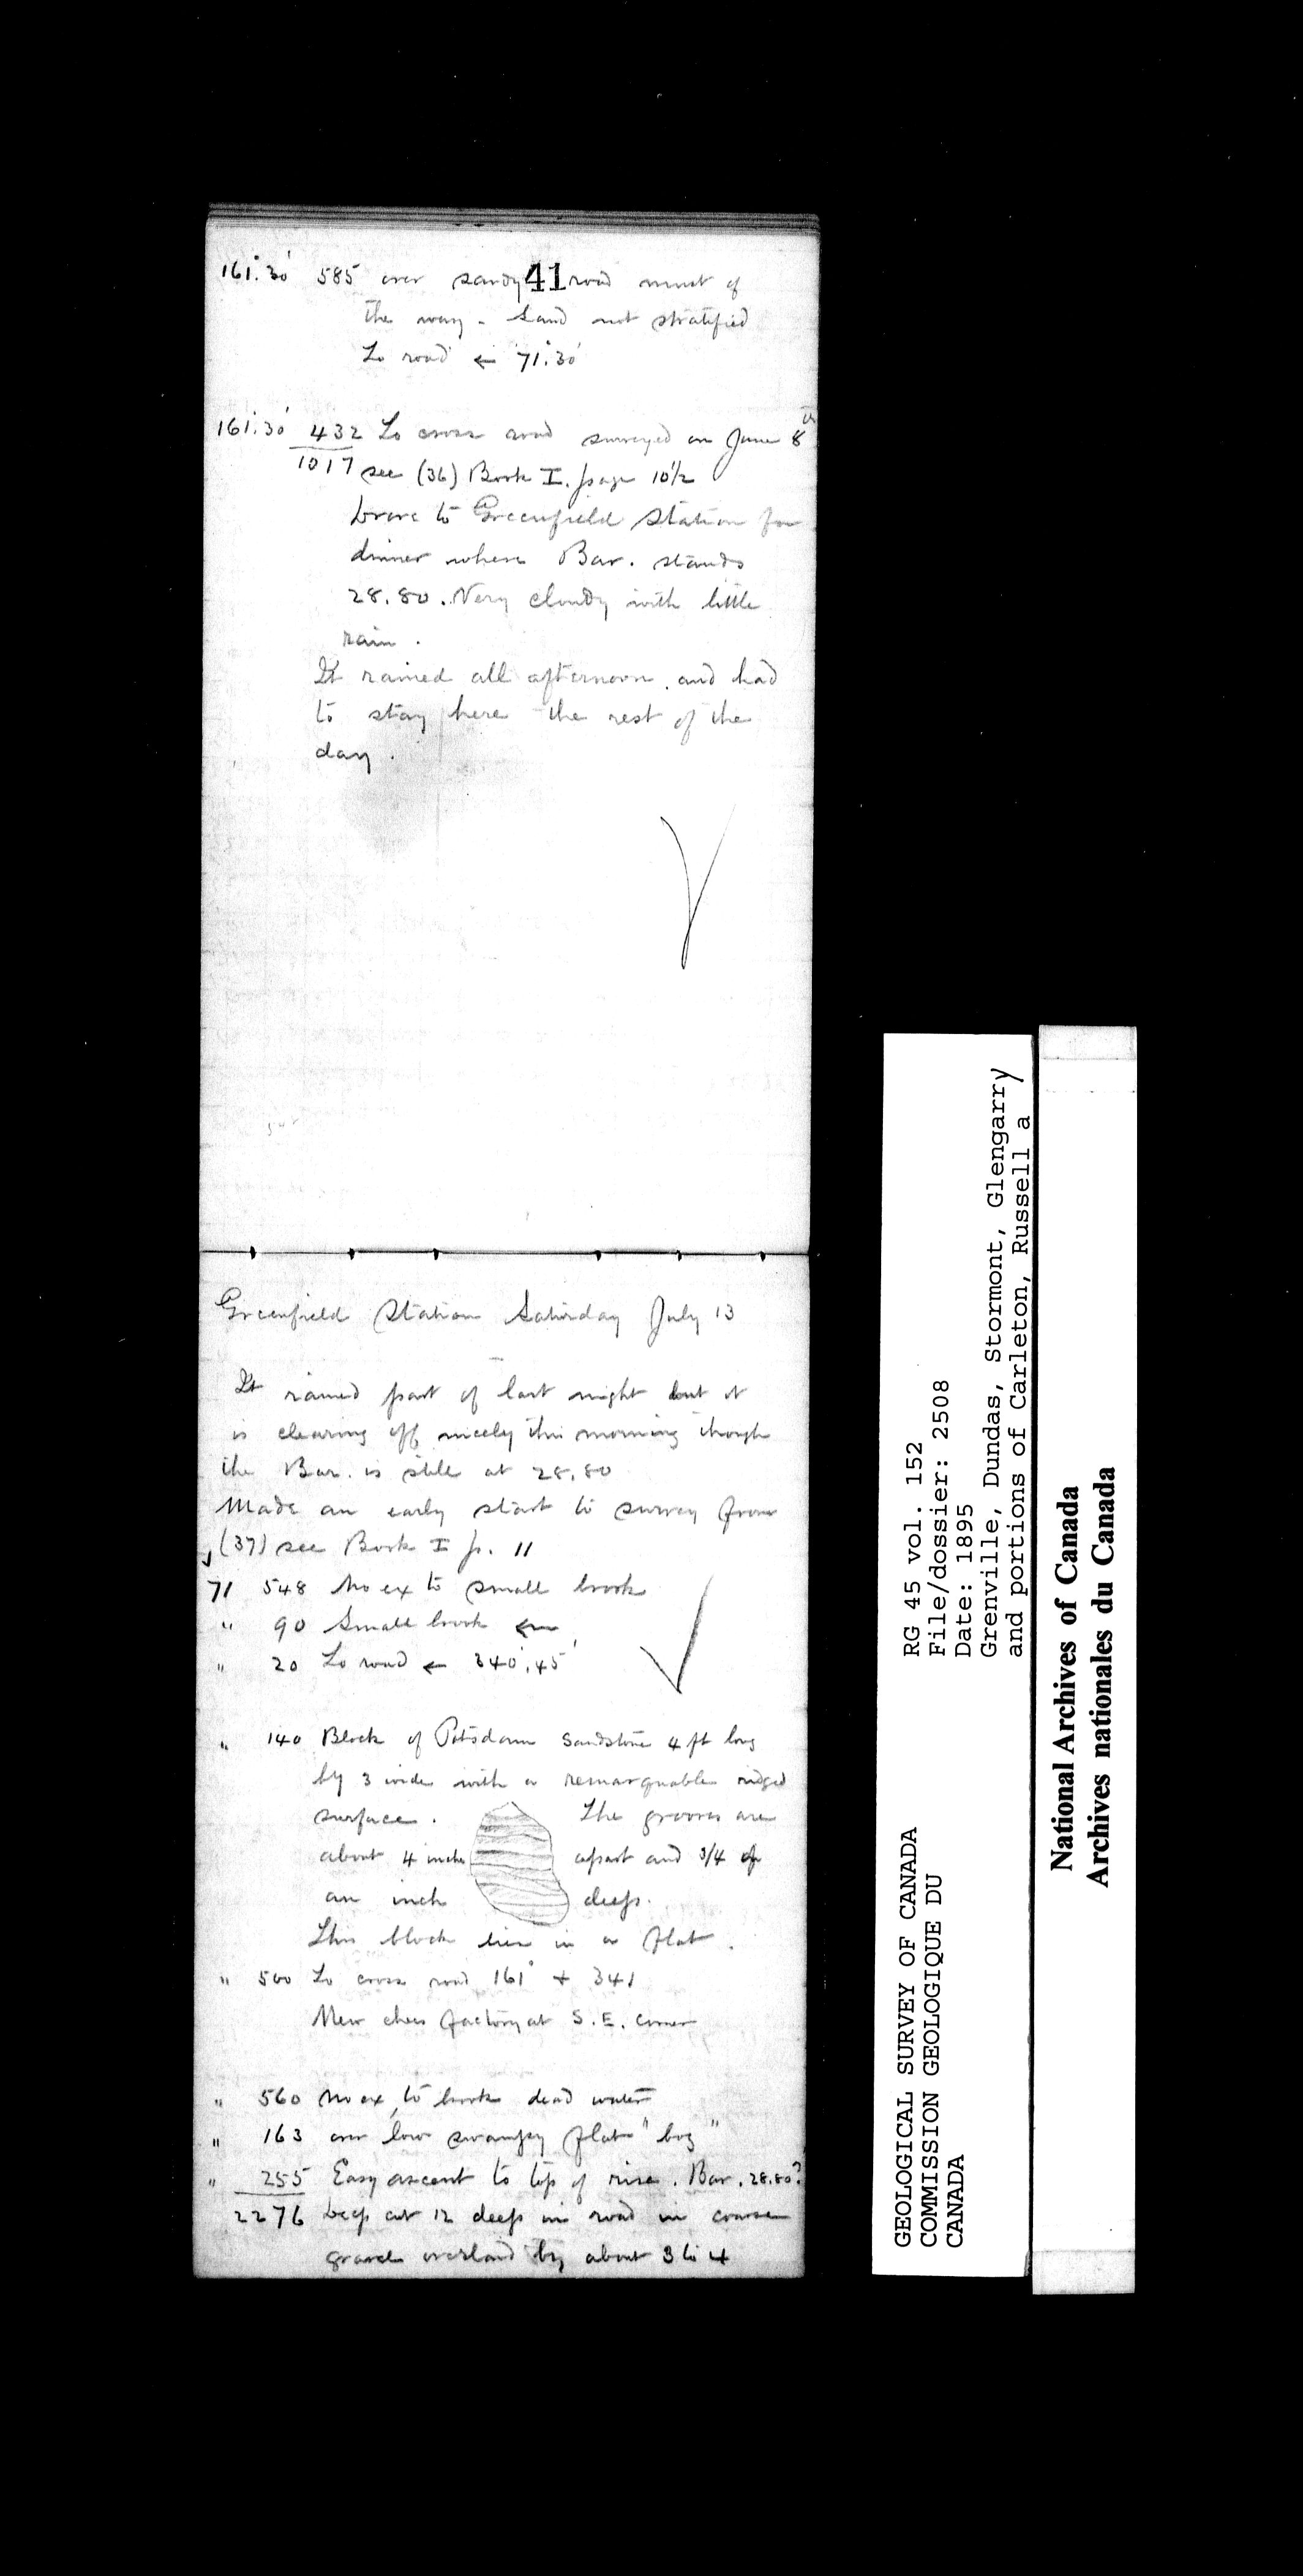 41
161°.30' 585 over sandy road most of
the way - Sand not stratified
To road ← 71°.30'
161°.30' 432 To cross road surveyed on June 8th
1017 see (36) Book I. page 10½
Drove to Greenfield Station for
dinner where Bar. stands
28.80. Very cloudy with little
rain.
It rained all afternoon and had
to stay here the rest of the
day.
Greenfield Station Saturday July 13
It rained part of last night but it
is clearing off nicely this morning though
the Bar. is still at 28.80
Made an early start to survey from
(37) see Book I p. 11
71 548 No ex to small brook
" 90 Small brook ←
" 20 To road ← 340°.45'
" 140 Block of Potsdam Sandstone 4 ft long
by 3 wide with a remarquable ridged
surface. The grooves are
about 4 inches apart and 3/4 of
an inch deep.
This block lies in a flat.
" 500 To cross road 161° + 341
New chees factory at S.E. corner
" 560 No ex, to brook dead water
" 163 over low swampy flat "bog"
" 255 Easy ascent to top of rise. Bar. 28.80?
2276 Deep cut 12 deep in road in coarse
gravel overlaid by about 3 to 4
GEOLOGICAL SURVEY OF CANADA
COMMISSION GEOLOGIQUE DU
CANADA
RG 45 vol. 152
File/dossier: 2508
Date: 1895
Grenville, Dundas, Stormont, Glengarry
and portions of Carleton, Russell a
National Archives of Canada
Archives nationales du Canada